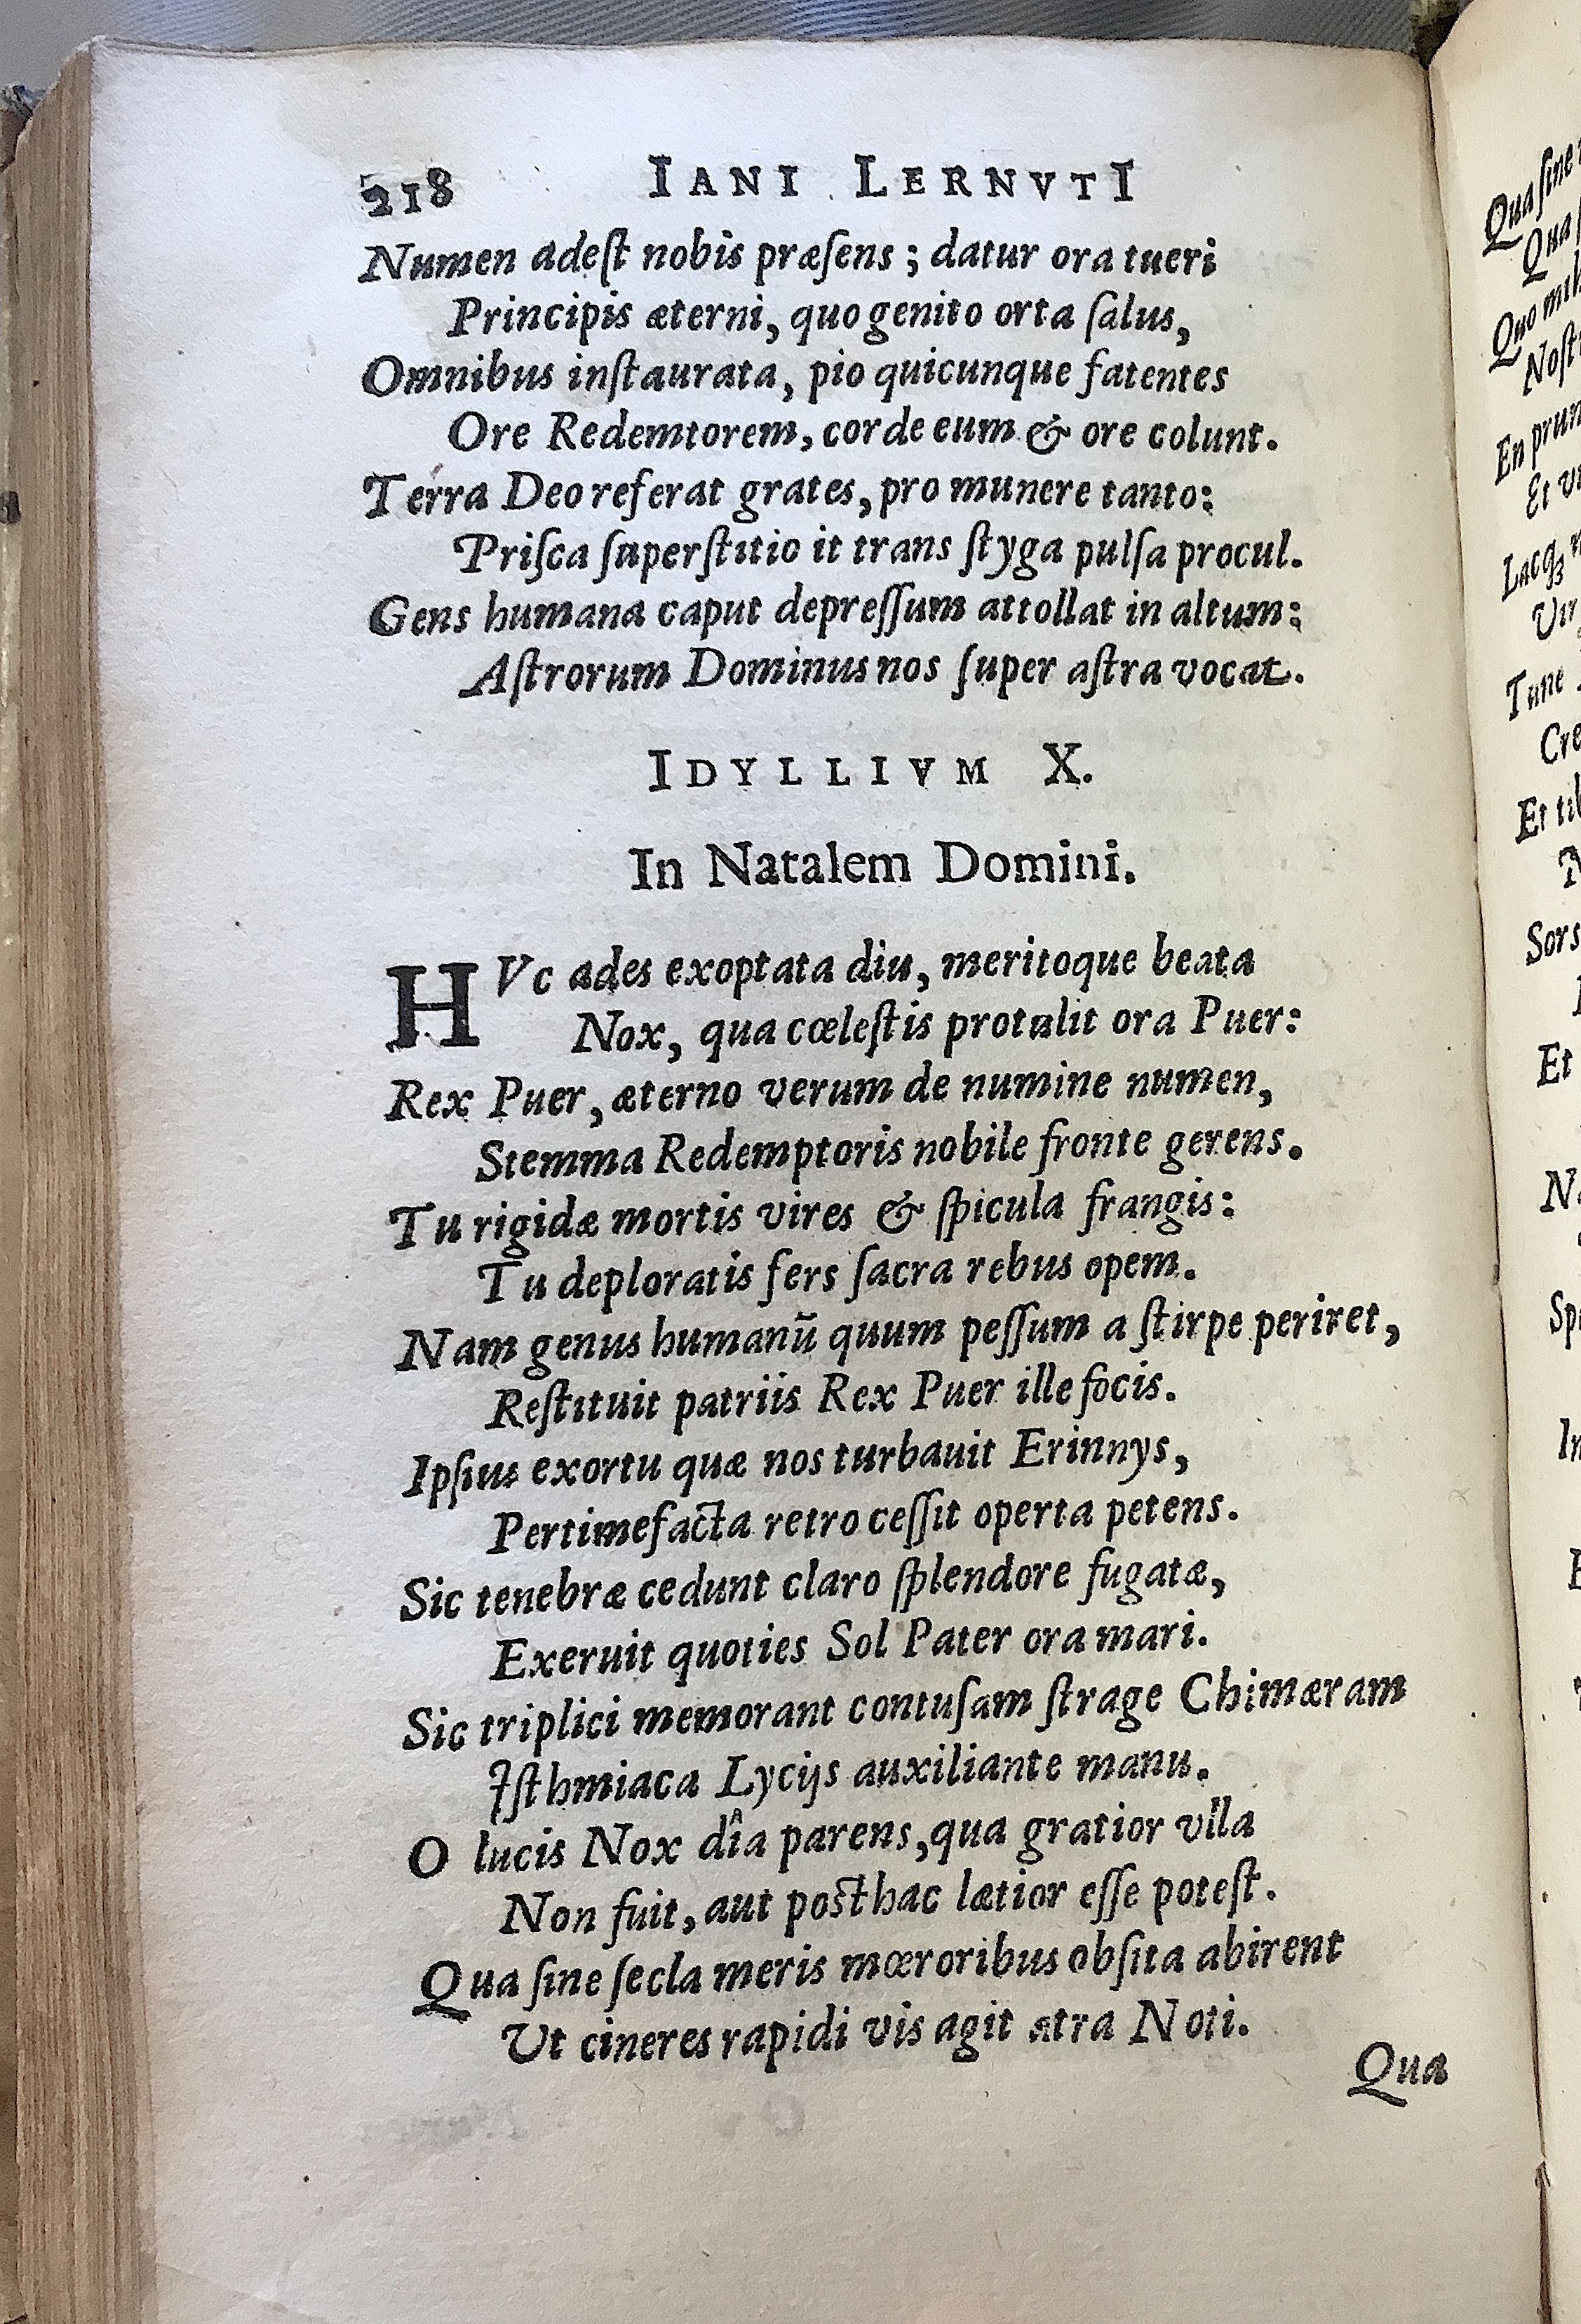 218 IANI LERNVTI
Numen adeſt nobis præſens ; datur ora tueri
Principis æterni, quo genito orta ſalus,
Omnibus inſtaurata, pio quicunque fatentes
Ore Redemtorem, corde eum & ore colunt.
Terra Deo referat grates, pro munere tanto:
Priſca ſuperſtitio it trans ſtyga pulſa procul.
Gens humana caput depreſſum attollat in altum:
Aſtrorum Dominus nos ſuper aſtra vocat.
IDYLLIVM X.
In Natalem Domini.
HVc ades exoptata diu, meritoque beata
Nox, qua cœleſtis protulit ora Puer:
Rex Puer, æterno verum de numine numen,
Stemma Redemptoris nobile fronte gerens.
Tu rigidæ mortis vires & ſpicula frangis:
Tu deploratis fers ſacra rebus opem.
Nam genus humanū quum peſſum a ſtirpe periret,
Reſtituit patriis Rex Puer ille focis.
Ipſius exortu quæ nos turbauit Erinnys,
Pertimefacta retro ceſſit operta petens.
Sic tenebræ cedunt claro ſplendore fugatæ,
Exeruit quoties Sol Pater ora mari.
Sic triplici memorant contuſam ſtrage Chimæram
Iſthmiaca Lycijs auxiliante manu.
O lucis Nox dîa parens, qua gratior vlla
Non fuit, aut poſthac lætior eſſe poteſt.
Qua ſine ſecla meris mœroribus obſita abirent
Ut cineres rapidi vis agit atra Noti.
Qua
Qua ſine
Qua
Quo
Noſt
En
Et
Lacq́;
Tune
Cre
Et
Sors
Et